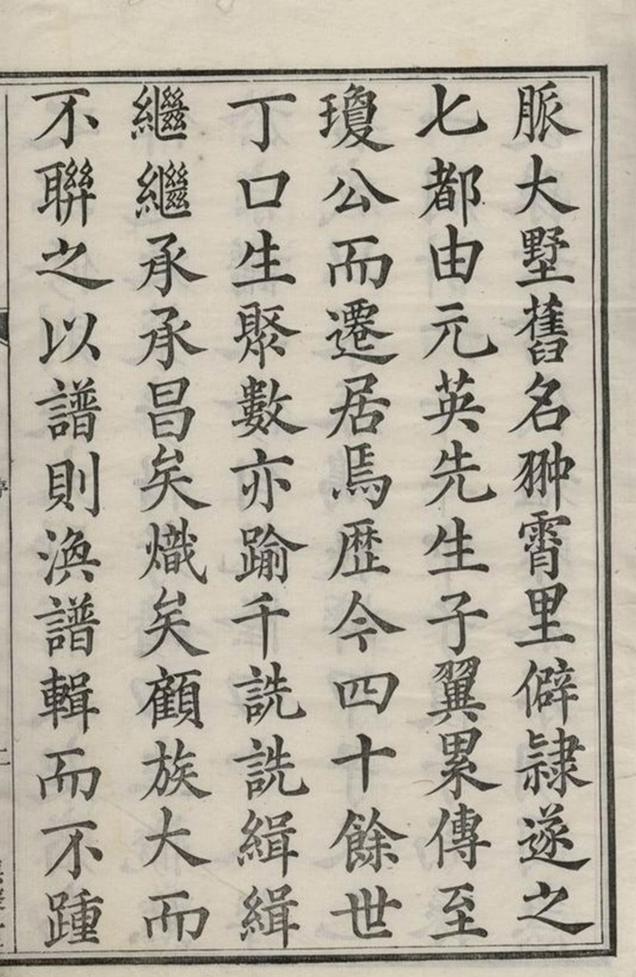 脈大墅舊名翀霄里僻隷遂之
七都由元英先生子翼累傳至
瓊公而遷居焉歷今四十餘世
丁口生聚數亦踰千詵詵緝緝
繼繼承承昌矣熾矣顧族大而
不聯之以譜則渙譜輯而不踵